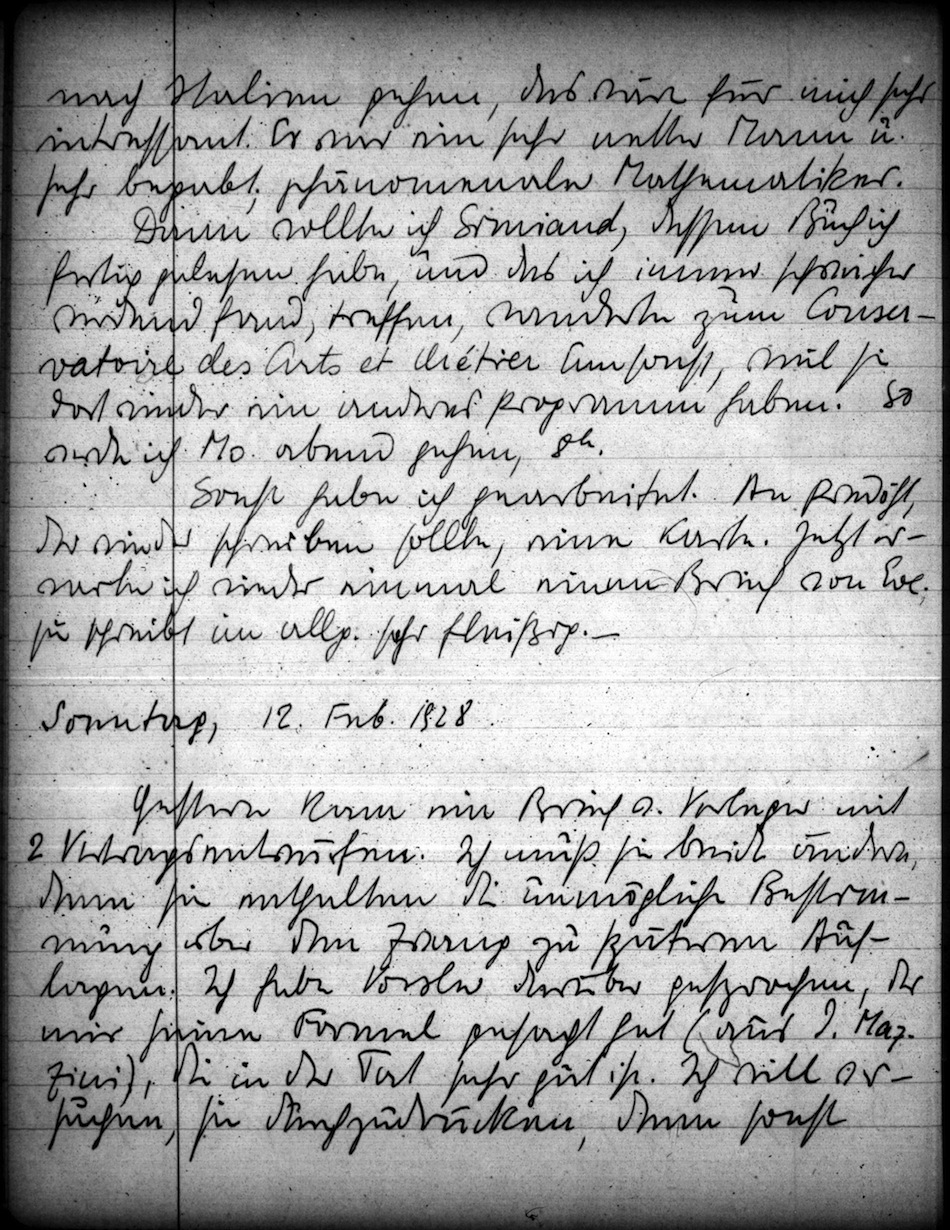 nach Italien gehen, das wäre für mich sehr
interessant. Er war ein sehr netter Mann u.
sehr begabt, phänomenaler Mathematiker.
Dann wollte ich Simiand, dessen Buch ich
fertig gelesen habe, und das ich immer schwächer
werdend fand, treffen, wanderte zum Conser-
vatoire des Arts et Métier umsonst, weil sie
dort wieder ein anderes Programm haben. So
werde ich Mo. abend gehen, 8h.
Sonst habe ich gearbeitet. An Predöhl,
der wieder schreiben sollte, eine Karte. Jetzt er-
warte ich wieder einmal einen Brief von Eve.,
sie schreibt im allg. sehr fleißig. —
Sonntag, 12. Feb. 1928
Gestern kam ein Brief v. Verleger mit
2 Vertragsentwürfen. Ich muß sie beide ändern,
denn sie enthalten die unmögliche Bestim-
mung über den Zwang zu späteren Auf-
lagen. Ich habe Vossler darüber gesprochen, der
mir seine Formel gesagt hat (aus d. Maz-
zini), die in der Tat sehr gut ist. Ich will ver-
suchen, sie durchzudrücken, denn sonst